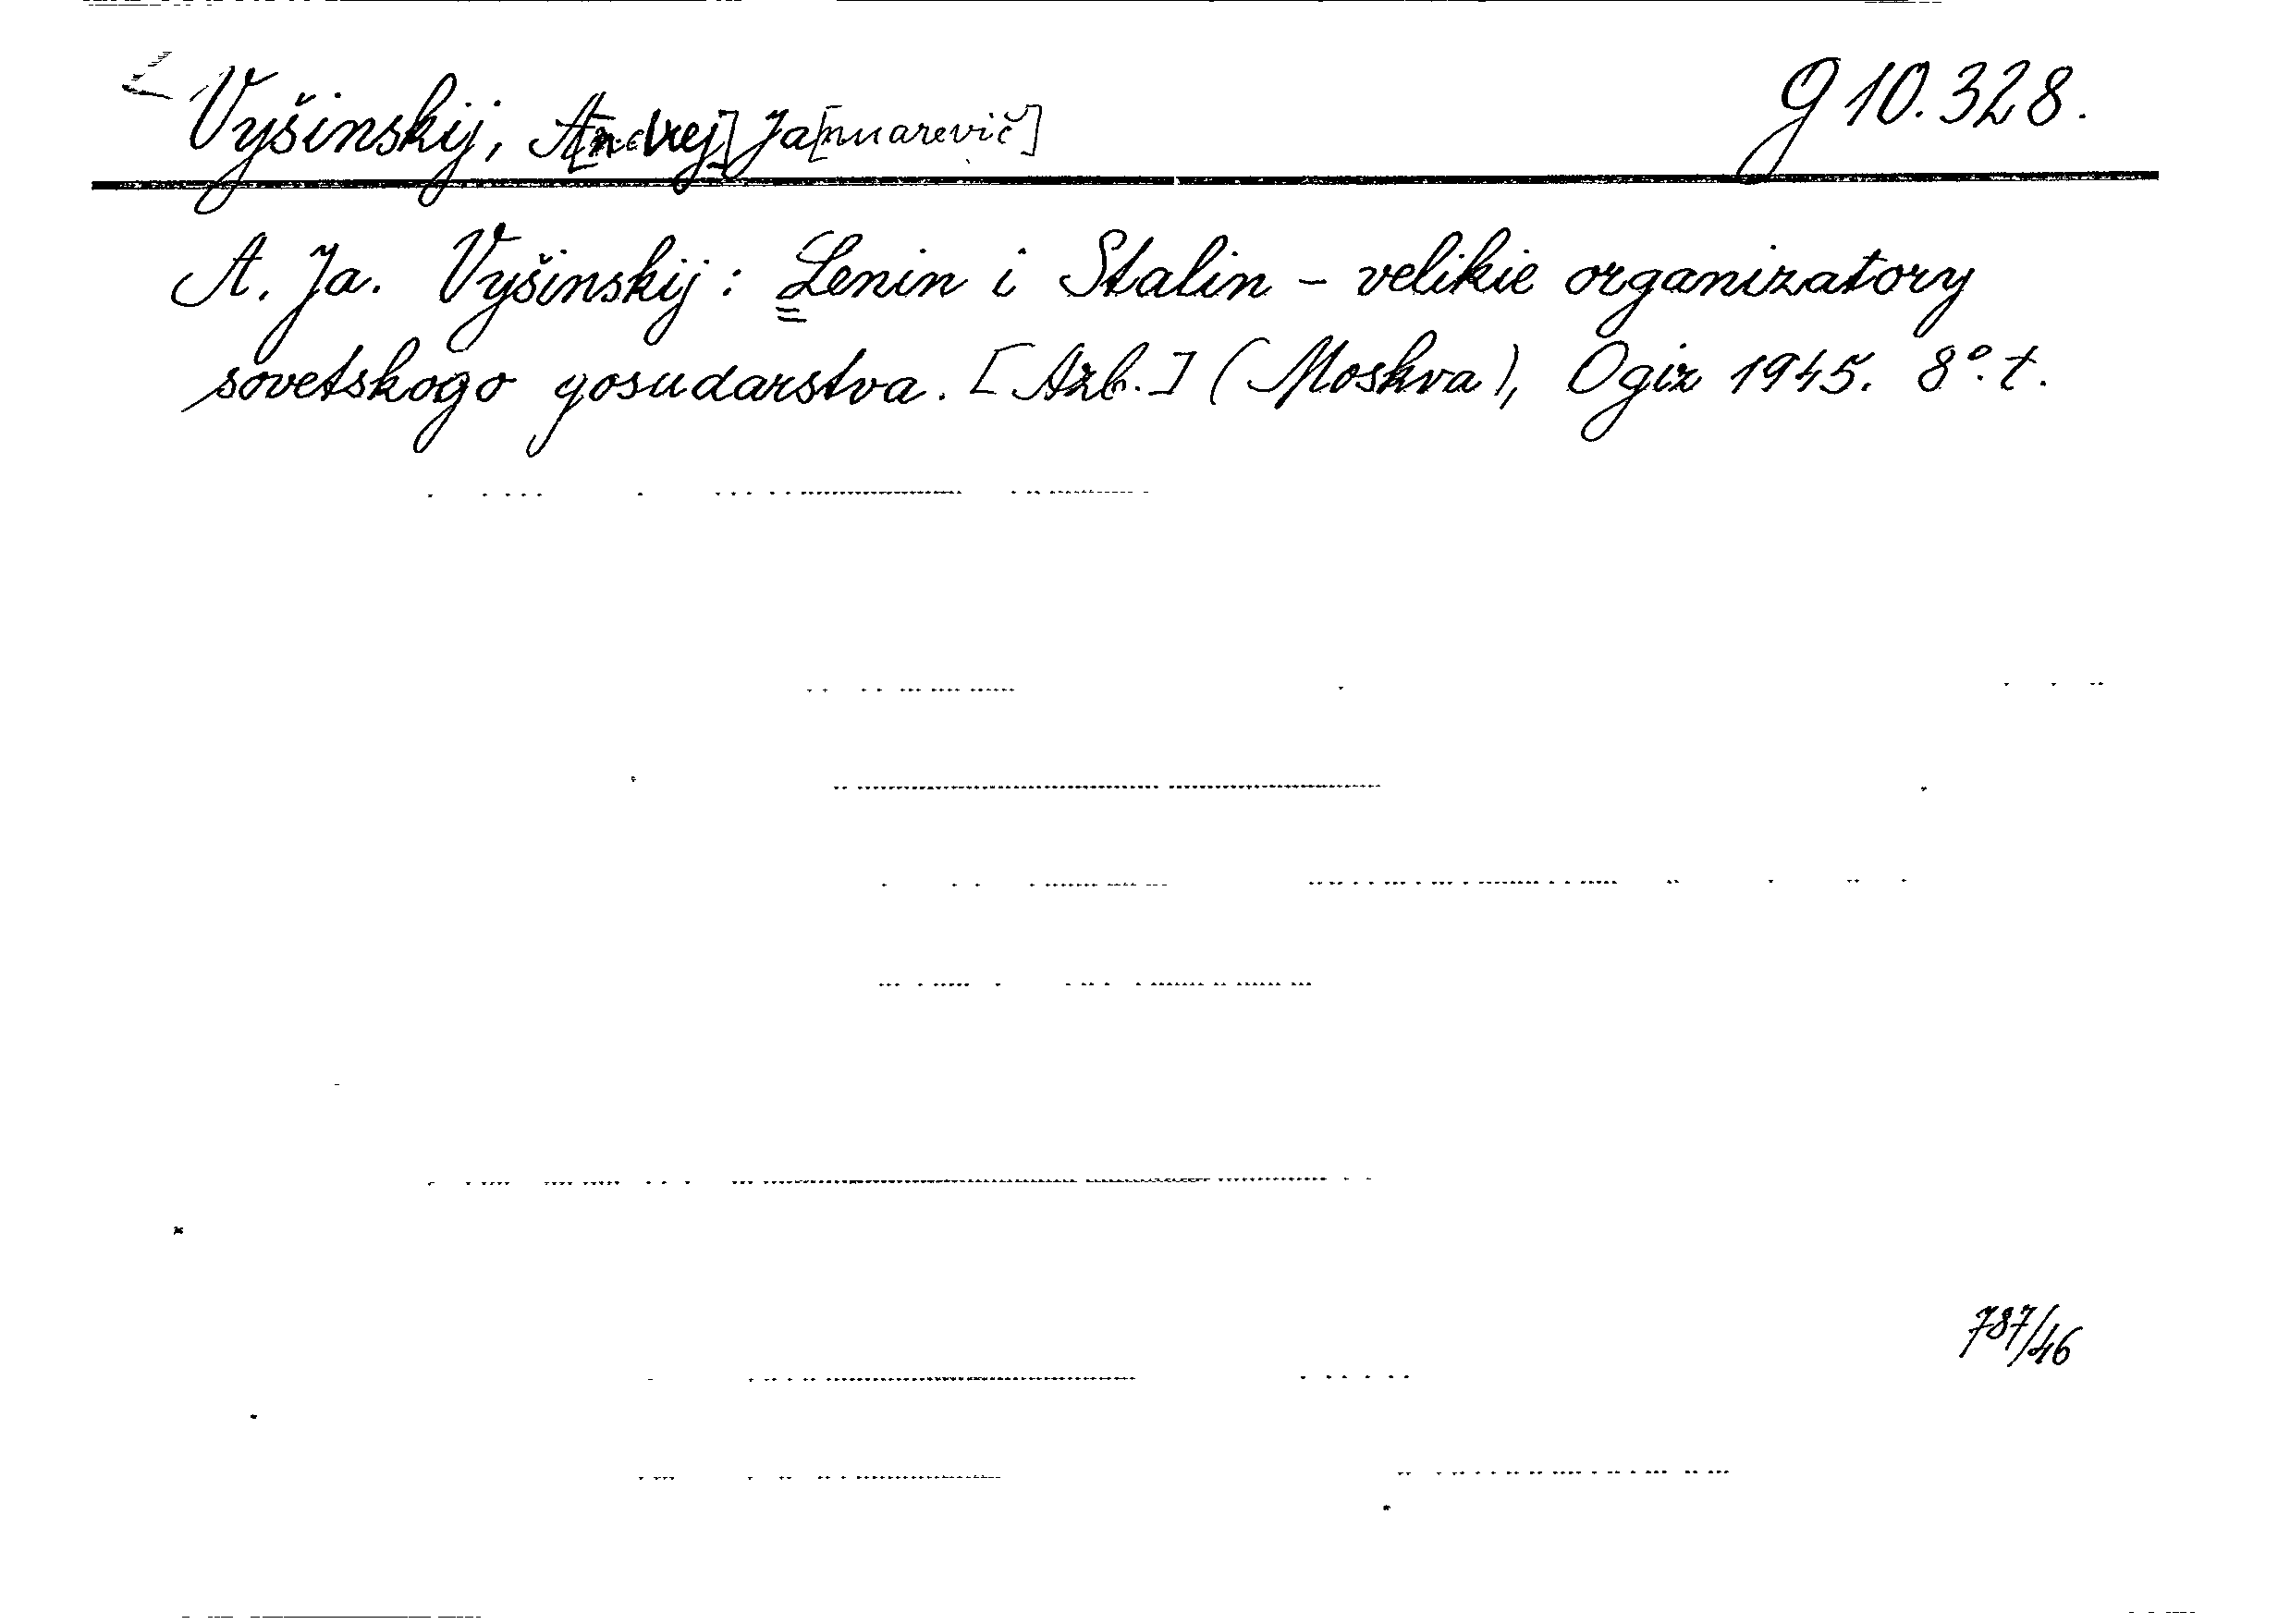 Vyšinskij, A[ndrej] Ja[nuarevič] g 10.328.
A. Ja. Vyšinskij: Lenin i Stalin - velikie organizatory
sovetskogo gosudarstva. [Azb.] (Moskva), Ogiz 1945. 8°. t.
787/46